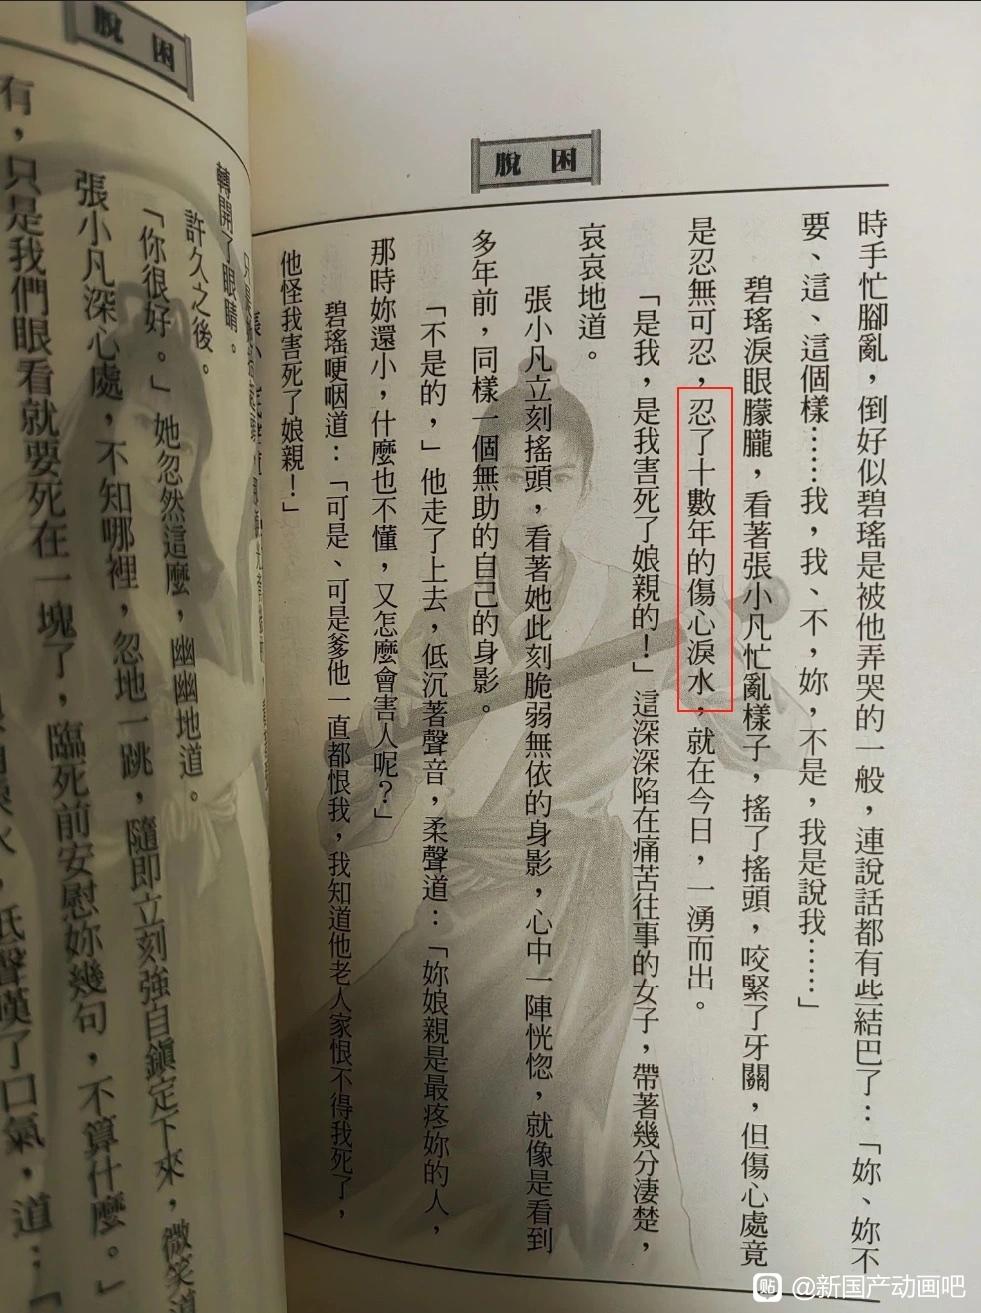 脫困
時手忙腳亂，倒好似碧瑤是被他弄哭的一般，連說話都有些結巴了：「妳、妳不
要、這、這個樣……我，我、不，妳，不是，我是說我……」
碧瑤淚眼朦朧，看著張小凡忙亂樣子，搖了搖頭，咬緊了牙關，但傷心處竟
是忍無可忍，忍了十數年的傷心淚水，就在今日，一湧而出。
「是我，是我害死了娘親的！」這深深陷在痛苦往事的女子，帶著幾分淒楚，
哀哀地道。
張小凡立刻搖頭，看著她此刻脆弱無依的身影，心中一陣恍惚，就像是看到
多年前，同樣一個無助的自己的身影。
「不是的，」他走了上去，低沉著聲音，柔聲道：「妳娘親是最疼妳的人，
那時妳還小，什麼也不懂，又怎麼會害人呢？」
碧瑤哽咽道：「可是、可是爹他一直都恨我，我知道他老人家恨不得我死了，
他怪我害死了娘親！」
脫困
轉開了眼睛。
許久之後。
「你很好。」她忽然這麼，幽幽地道。
張小凡深心處，不知哪裡，忽地一跳，隨即立刻強自鎮定下來，微笑道
有，只是我們眼看就要死在一塊了，臨死前安慰妳幾句，不算什麼。」
低聲嘆了口氣，道：「
貼 @新国产动画吧